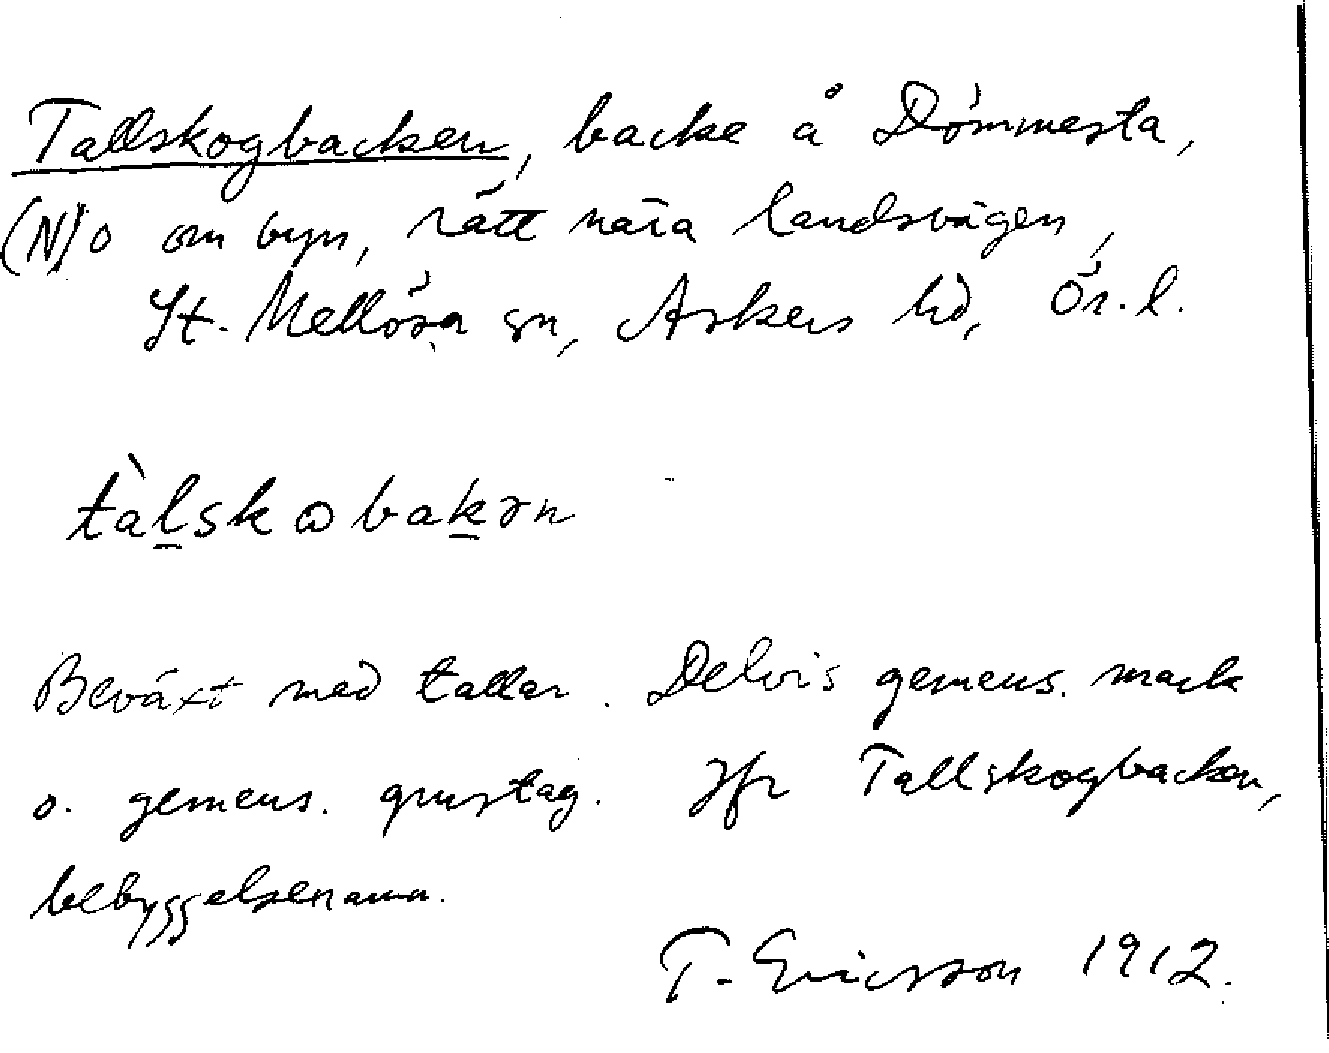 Tallskogbacken, backe å Dömmesta,
(N)O om byn, rätt nära landsvägen,
St. Mellösa sn, Askers hd, Ör. l.
tàl̠skɷbak̠ən
Beväxt med tallar. Delvis gemens. mark
o. gemens. grustag. Jfr Tallskogbacken,
bebyggelsenamn.
T. Ericsson 1912.